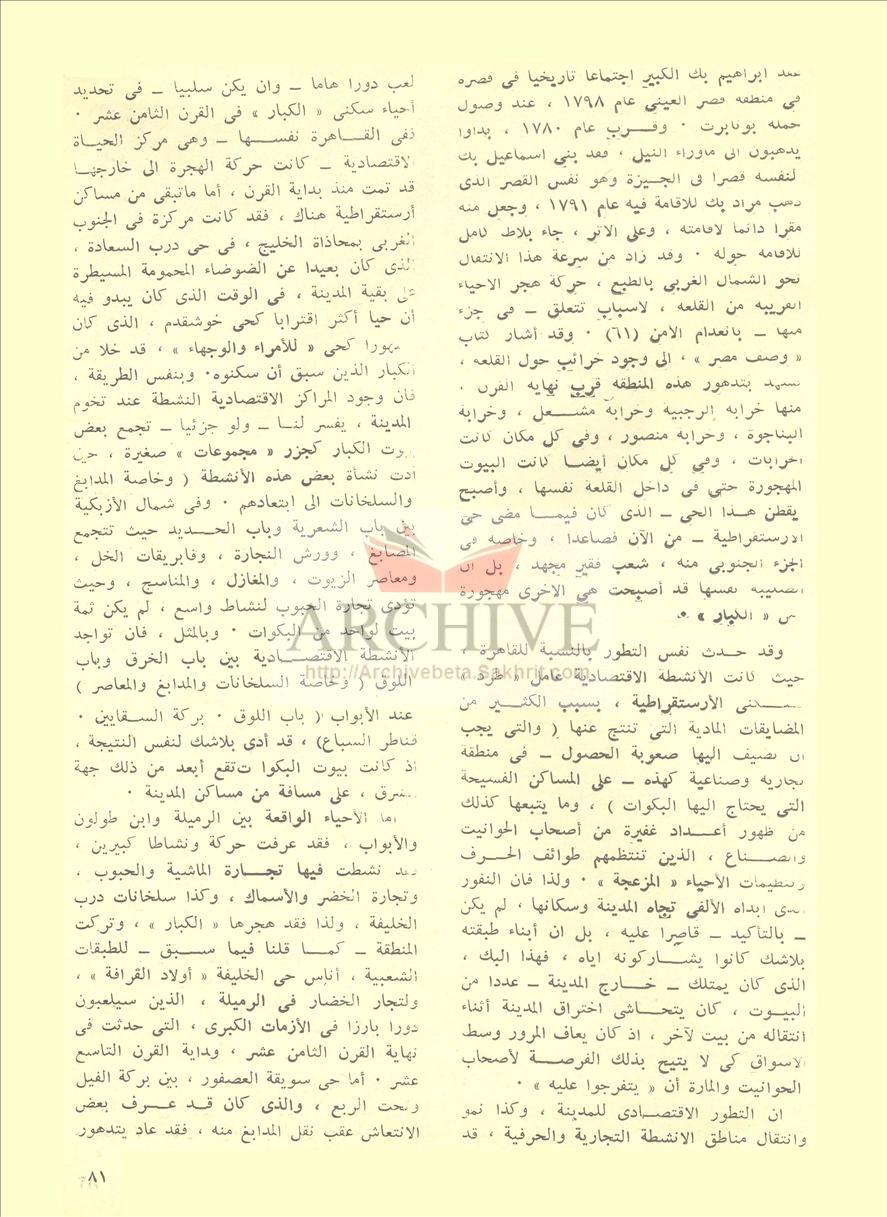 عقد ابراهيم بك الكبير اجتماعا تاريخيا في قصره
في منطقة قصر العيني عام ١٧٩٨ ، عند وصول
حملة بونابرت ٠ وقرب عام ١٧٨٠ ، بداوا
يذهبون الى ماوراء النيل ، فقد بنى اسماعيل بك
لنفسه قصرا فى الجيزة وهو نفس القصر الذى
ذهب مراد بك للاقامة فيه عام ١٧٩١ ، وجعل منه
مقرا دائما لاقامته ، وعلى الاثر ، جاء بلاط كامل
للاقامة حوله ٠ وقد زاد من سرعة هذا الانتقال
نحو الشمال الغربي بالطبع ، حركة هجر الاحياء
القريبة من القلعة ، لاسباب تتعلق ــ في جزء
منها ــ بانعدام الأمن (٦١) ٠ وقد أشار كتاب
« وصف مصر » ، الى وجود خرائب حول القلعة ،
تشهد بتدهور هذه المنطقة قرب نهاية القرن ،
منها خرابة الرجبية وخرابة مشعل ، وخرابة
البناجوة ، وخرابة منصور ، وفي كل مكان كانت
الخرابات ، وفي كل مكان أيضا كانت البيوت
المهجورة حتى في داخل القلعة نفسها ، وأصبح
يقطن هذا الحى ــ الذى كان فيما مضى حى
الارستقراطية ــ من الآن فصاعدا ، وخاصة فى
الجزء الجنوبي منه ، شعب فقير مجهد ، بل ان
الصليبة نفسها قد أصبحت هى الأخرى مهجورة
من « الكبار » ٠
وقد حدث نفس التطور بالنسبة للقاهرة ،
حيث كانت الأنشطة الاقتصادية عامل « طرد »
لسكنى الأرستقراطية ، بسبب الكثير من
المضايقات المادية التى تنتج عنها ( والتى يجب
أن نضيف اليها صعوبة الحصول ــ فى منطقة
تجارية وصناعية كهذه ــ على المساكن الفسيحة
التى يحتاج اليها البكوات ) ، وما يتبعها كذلك
من ظهور أعداد غفيرة من أصحاب الحوانيت
والصناع ، الذين تنتظمهم طوائف الحرف
وتنظيمات الأحياء « المزعجة » ٠ ولذا فان النفور
الذى ابداه الألفى تجاه المدينة وسكانها ، لم يكن
ــ بالتأكيد ــ قاصرا عليه ، بل ان أبناء طبقته
بلاشك كانوا يشاركونه اياه ، فهذا البك ،
الذى كان يمتلك ــ خارج المدينة ــ عددا من
البيوت ، كان يتحاشى اختراق المدينة أثناء
انتقاله من بيت لآخر ، اذ كان يعاف المرور وسط
الأسواق كى لا يتيح بذلك الفرصة لأصحاب
الحوانيت والمارة أن « يتفرجوا عليه » ٠
ان التطور الاقتصادى للمدينة ، وكذا نمو
وانتقال مناطق الانشطة التجارية والحرفية ، قد
لعب دورا هاما ــ وان يكن سلبيا ــ فى تحديد
أحياء سكنى « الكبار » فى القرن الثامن عشر ٠
ففى القاهرة نفسها ــ وهى مركز الحياة
الاقتصادية ــ كانت حركة الهجرة الى خارجها
قد تمت منذ بداية القرن ، أما ماتبقى من مساكن
أرستقراطية هناك ، فقد كانت مركزة فى الجنوب
الغربى بمحاذاة الخليج ، فى حى درب السعادة ،
الذى كان بعيدا عن الضوضاء المحمومة المسيطرة
على بقية المدينة ، فى الوقت الذى كان يبدو فيه
أن حيا أكثر اقترابا كحى خوشقدم ، الذى كان
مشهورا كحى « للأمراء والوجهاء » ، قد خلا من
الكبار الذين سبق أن سكنوه٠ وبنفس الطريقة ،
فان وجود المراكز الاقتصادية النشطة عند تخوم
المدينة ، يفسر لنا ــ ولو جزئيا ــ تجمع بعض
بيوت الكبار كجزر « مجموعات » صغيرة ، حيث
أدت نشأة بعض هذه الأنشطة ( وخاصة المدابغ
والسلخانات الى ابتعادهم ٠ وفى شمال الأزبكية
بين باب الشعرية وباب الحديد حيث تتجمع
المصابغ ، وورش النجارة ، وفابريقات الخل ،
ومعاصر الزيوت ، والمغازل ، والمناسج ، وحيث
تؤدى تجارة الحبوب لنشاط واسع ، لم يكن ثمة
بيت لواحد من البكوات ٠ وبالمثل ، فان تواجد
الأنشطة الاقتصادية بين باب الخرق وباب
اللوق ( وخاصة السلخانات والمدابغ والمعاصر )
عند الأبواب ( باب اللوق ٠ بركة السقايين ٠
قناطر السباع) ، قد أدى بلاشك لنفس النتيجة ،
اذ كانت بيوت البكوا تتقع أبعد من ذلك جهة
الشرق ، على مسافة من مساكن المدينة ٠
أما الأحياء الواقعة بين الرميلة وابن طولون
والأبواب ، فقد عرفت حركة ونشاطا كبيرين ،
فقد نشطت فيها تجارة الماشية والحبوب ،
وتجارة الخضر والأسماك ، وكذا سلخانات درب
الخليفة ، ولذا فقد هجرها « الكبار » ، وتركت
المنطقة ــ كما قلنا فيما سبق ــ للطبقات
الشعبية ، أناس حى الخليفة « أولاد القرافة » ،
ولتجار الخضار فى الرميلة ، الذين سيلعبون
دورا بارزا فى الأزمات الكبرى ، التى حدثت فى
نهاية القرن الثامن عشر ، وبداية القرن التاسع
عشر ٠ أما حى سويقة العصفور ، بين بركة الفيل
وتحت الربع ، والذى كان قد عرف بعض
الانتعاش عقب نقل المدابغ منه ، فقد عاد يتدهور
ARCHIVE
http://Archivebeta.Sakhrit.com
٨١